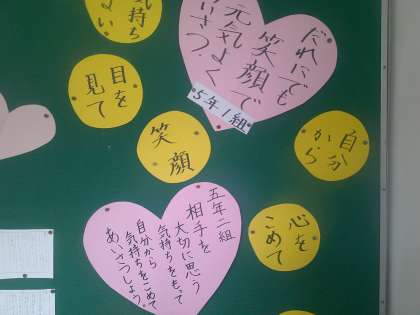 だれにでも
笑顔で
元気よく
あいさつ
5年1組
気持ち
よい
目を
見て
笑
顔
自分
から
五年二組
相手を
大切に思う
気持ちをもって
自分から
気持ちをこめて
あいさつしよう。
心を
こめて